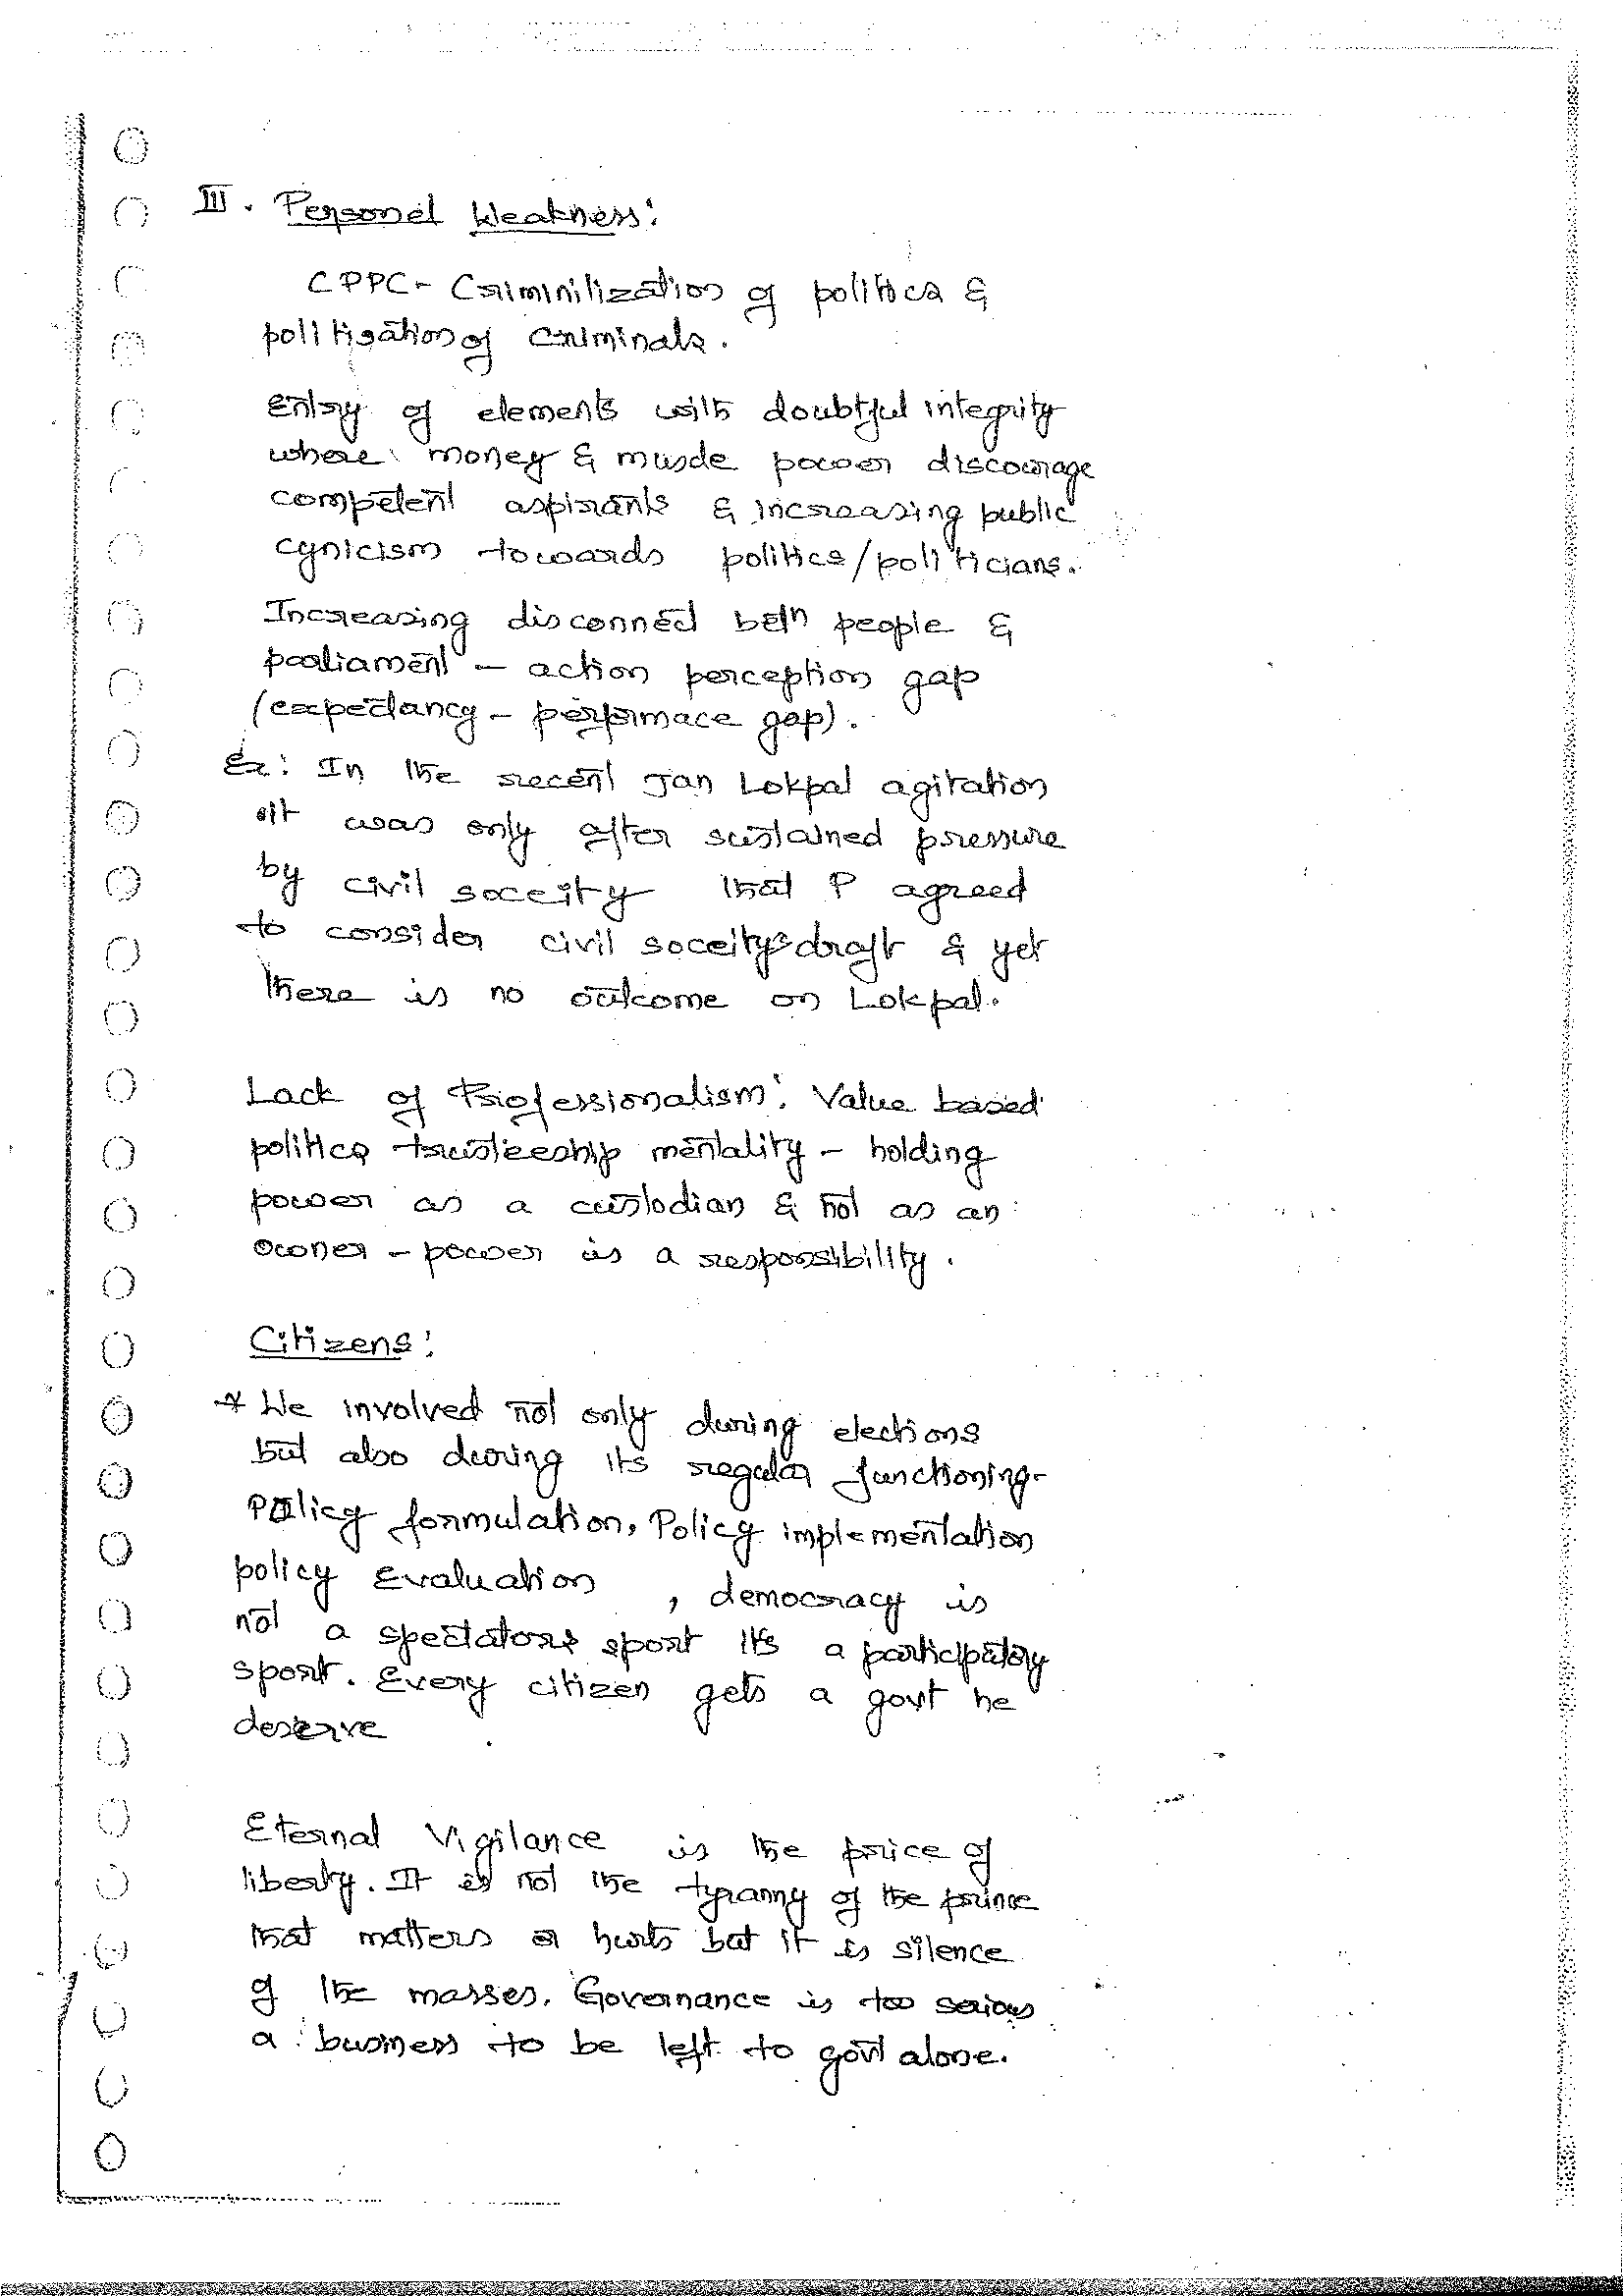 III. Personel Weakness:
CPPC- Criminilization of politics &
politisation of criminals.
Entry of elements with doubtful integrity
where money & muscle power discourage
competent aspirants & increasing public
cynicism towards politics/politicians.
Increasing disconnect betn people &
parliament - action perception gap
(expectancy - performace gap).
Ex: In the recent Jan Lokpal agitation
it was only after sustained pressure
by civil soceity that P agreed
to consider civil soceitys draft & yet
there is no outcome on Lokpal.
Lack of Professionalism: Value based
politics trusteeship mentality - holding
power as a custodian & not as an
owner - power is a responsibility.
Citizens:
* We involved not only during elections
but also during its regular functioning-
Policy formulation, Policy implementation
policy Evaluation , democracy is
not a spectators sport its a participatory
sport. Every citizen gets a govt he
deserve
Eternal Vigilance is the price of
liberty. It is not the tyranny of the prince
that matters or hurts but it is silence
of the masses. Governance is too serious
a business to be left to govt alone.